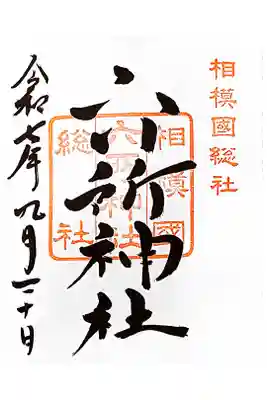 相模國総社
六所神社
相模國
六所神社
総社
令和七年九月二十日